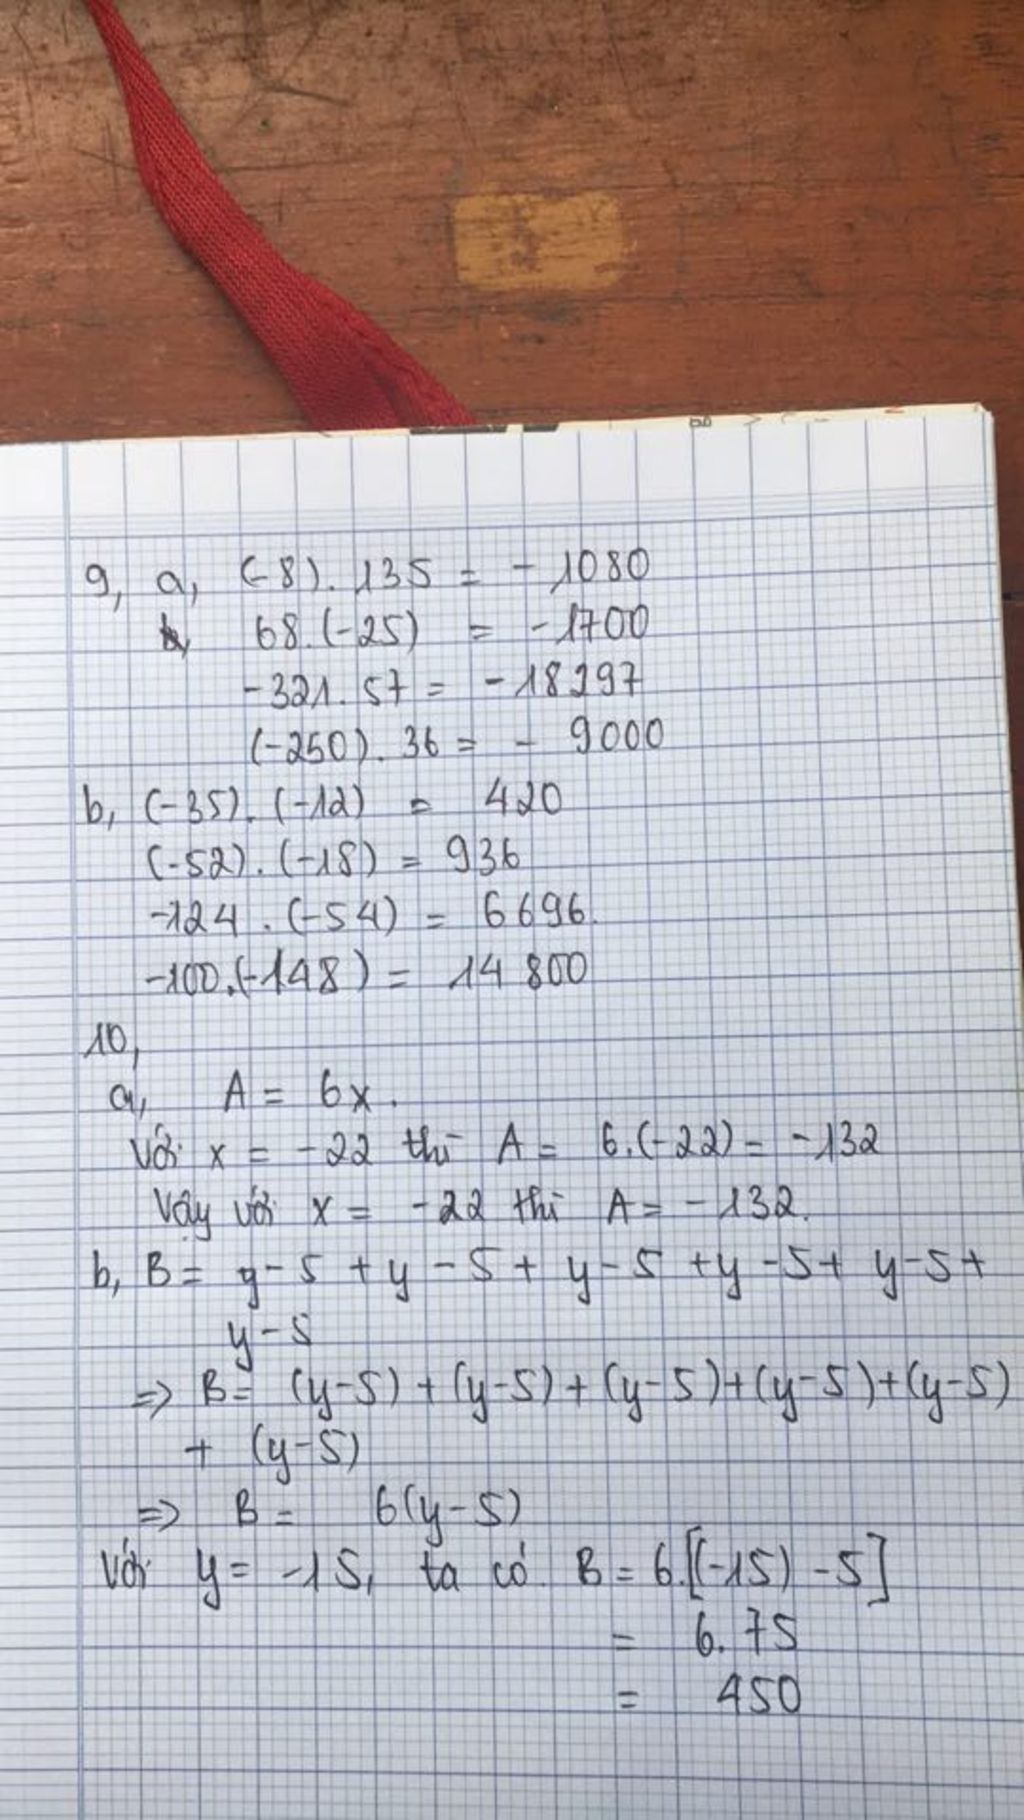 9, a, (-8). 135 = - 1080
68.(-25) = -1700
-321. 57 = -18297
(-250). 36 = - 9000
b, (-35). (-12) = 420
(-52). (-18) = 936
-124 . (-54) = 6696.
-100.(-148) = 14 800
10,
a, A = 6x.
Với x = -22 thì A = 6.(-22) = -132
Vậy với x = -22 thì A = -132.
b, B = y-5 + y-5 + y-5 + y-5 + y-5 +
y-5
=> B = (y-5) + (y-5) + (y-5) + (y-5) + (y-5)
+ (y-5)
=> B = 6(y-5)
Với y = -15, ta có B = 6.[(-15) -5]
= 6. 75
= 450